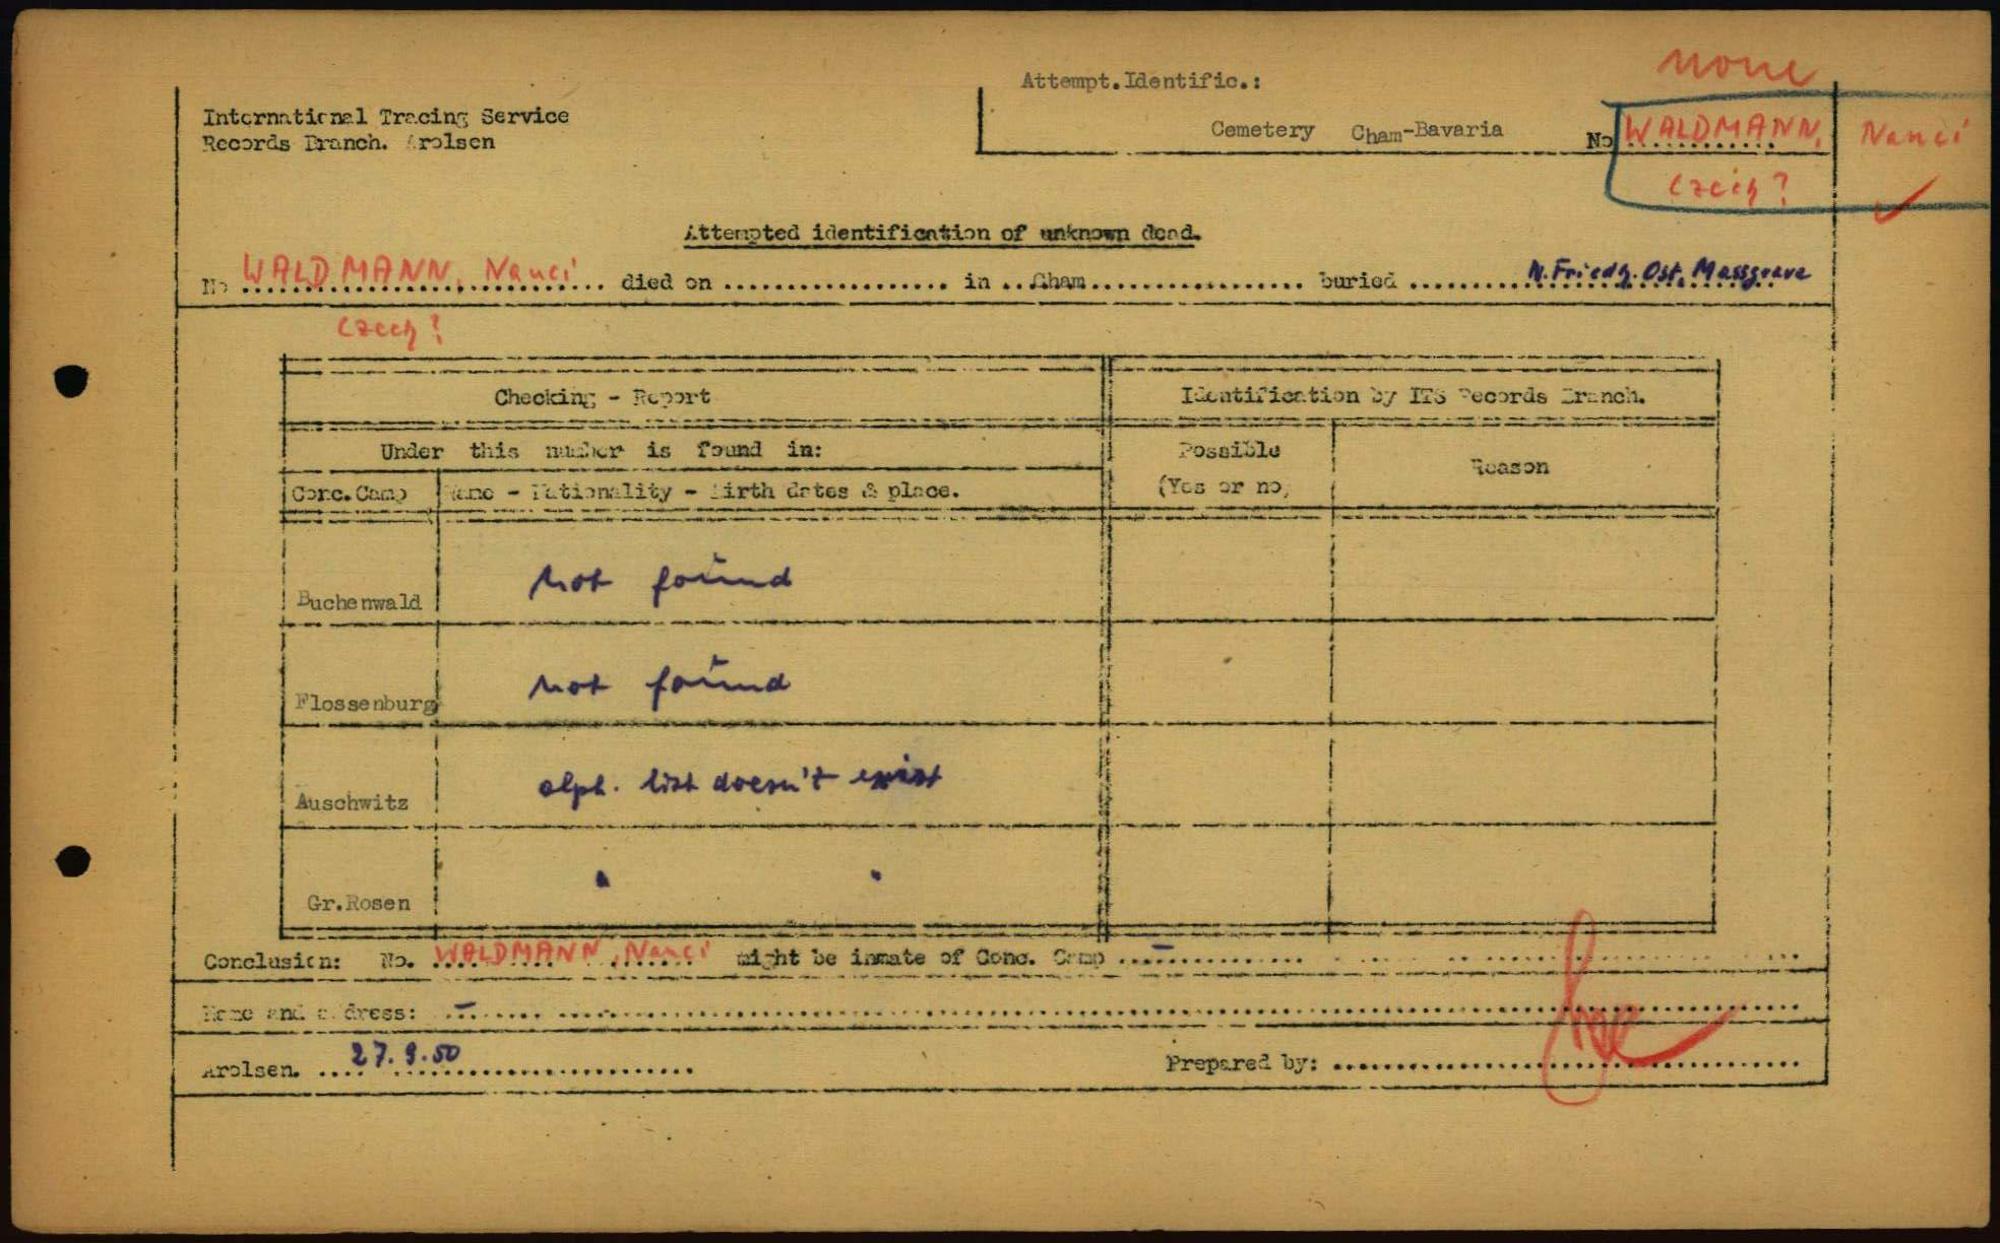 none
Attempt.Identific.:
International Tracing Service
Records Branch. Arolsen
Cemetery Cham-Bavaria No WALDMANN, Nanci
Czech?
Attempted identification of unknown dead.
No WALDMANN, Nanci died on .................. in ..Cham.................. buried .......... N.Friedh.Ost, Massgrave
Czech?
Checking - Report
Identification by ITS Records Branch.
Under this number is found in:
Possible
(Yes or no)
Reason
Conc.Camp
Name - Nationality - Birth dates & place.
Buchenwald not found
Flossenburg not found
Auschwitz alph. list doesn't exist
Gr.Rosen " "
Conclusion: No. WALDMANN, Nanci might be inmate of Conc. Camp ..–..............
Name and address: –..............
Arolsen. 27.9.50
Prepared by: ..............